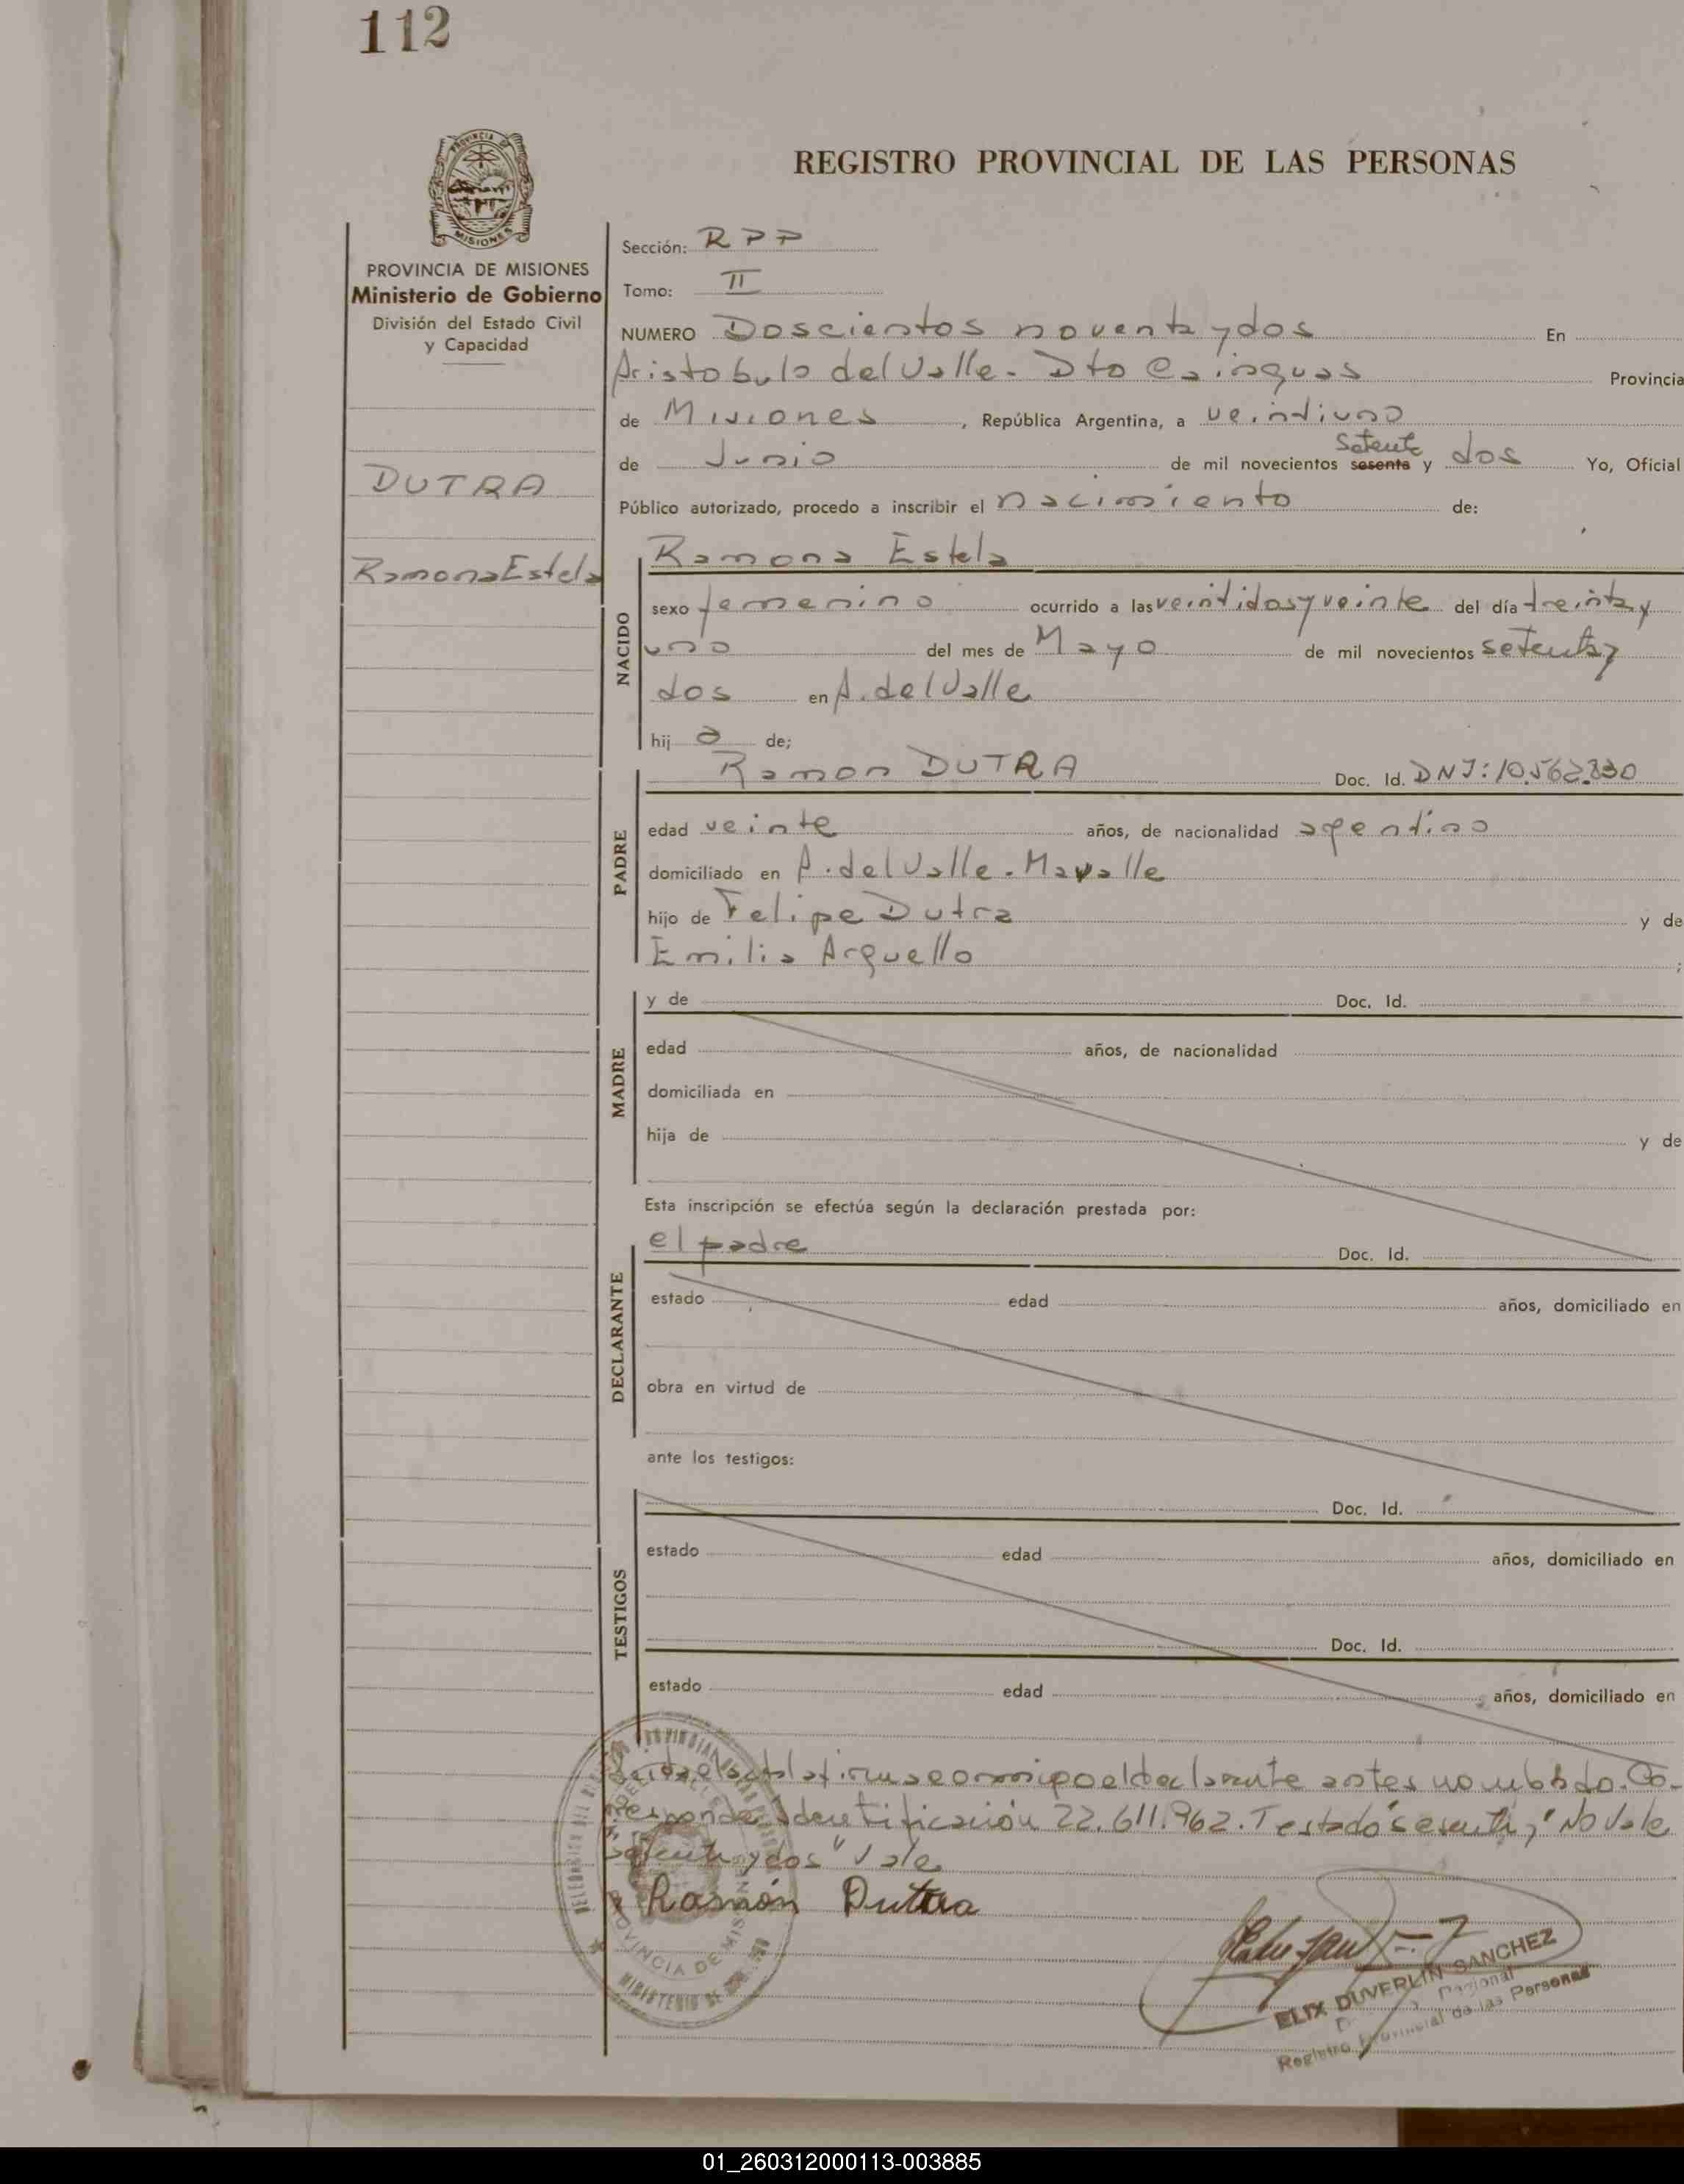 112
PROVINCIA DE
MISIONES
REGISTRO PROVINCIAL DE LAS PERSONAS
PROVINCIA DE MISIONES
Ministerio de Gobierno
División del Estado Civil
y Capacidad
DUTRA
Ramona Estela
Sección: RPP
Tomo: II
NUMERO Doscientos noventa y dos En
Aristobulo del Valle - Dto Cainguas Provincia
de Misiones, República Argentina, a veintiuno
setenta
de Junio de mil novecientos sesenta y dos Yo, Oficial
Público autorizado, procedo a inscribir el nacimiento de:
NACIDO
Ramona Estela
sexo femenino ocurrido a las veintidos y veinte del día treinta y
uno del mes de Mayo de mil novecientos setenta y
dos en A. del Valle
hij a de;
PADRE
Ramon DUTRA Doc. Id. DNI: 10.562.830
edad veinte años, de nacionalidad agentino
domiciliado en A. del Valle -
hijo de Felipe Dutra y de
Emilia Arguello ;
MADRE
y de Doc. Id.
edad años, de nacionalidad
domiciliada en
hija de y de
Esta inscripción se efectúa según la declaración prestada por:
DECLARANTE
el padre Doc. Id.
estado edad años, domiciliado en
obra en virtud de
ante los testigos:
TESTIGOS
Doc. Id.
estado edad años, domiciliado en
Doc. Id.
estado edad años, domiciliado en
firma conmigo el declarante antes nombrado. Co-
rresponde Identificación 22.611.962. Testado "sesenta" No Vale
setenta y dos" Vale
Ramón Dutra
PROVINCIA DE MISIONES
MINISTERIO DE
ELIX DUVERLIN SANCHEZ
Regional
Registro Provincial de las Personas
01_260312000113-003885